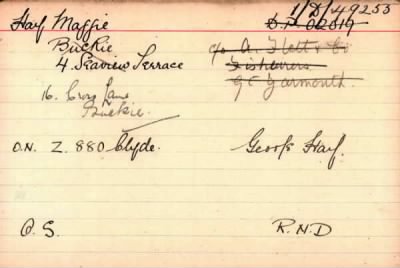 Hay Maggie 1/D/49253
Buckie D.P. 02019
4. Seaview Terrace c/o A. Flett & Co
Fishcurers
16. Cross Lane Gt Yarmouth.
Buckie.
O.N. Z. 880 Clyde. George Hay.
O.S. R.N.D